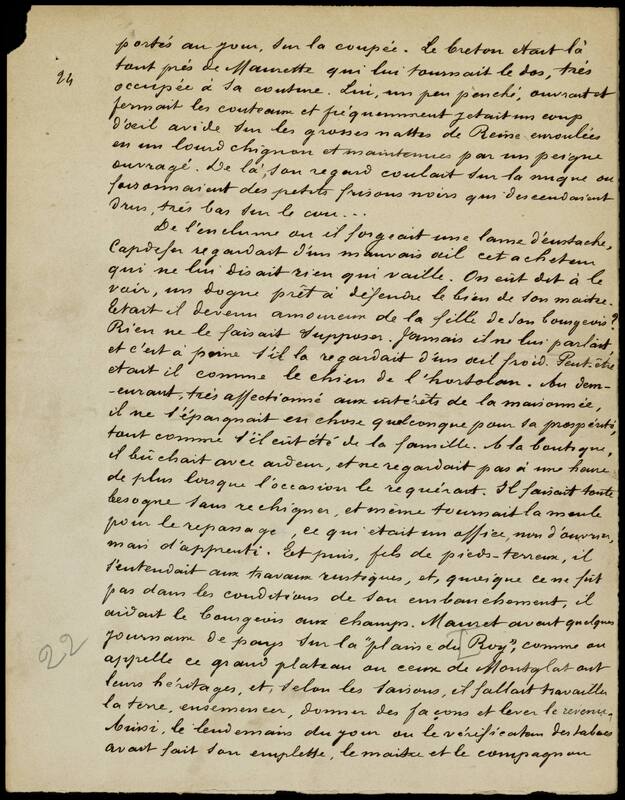 portés au jour, sur la coupée. Le breton était là
24
tout près de Maurette qui lui tournait le dos, très
occupée à sa couture. Lui, un peu penché, ouvrait et
fermait les couteaux et fréquemment jetait un coup
d'œil avide sur les grosses nattes de Reine enroulées
en un lourd chignon et maintenues par un peigne
ouvragé. De là, son regard coulait sur la nuque où
foisonnaient des petits frisons noirs qui descendaient
drus, très bas sur le cou...
De l'enclume où il forgeait une lame d'eustache,
Capdefer regardait d'un mauvais œil cet acheteur
qui ne lui disait rien qui vaille. On eût dit à le
voir, un dogue prêt à défendre le bien de son maître.
Etait il devenu amoureux de la fille de son bourgeois?
Rien ne le faisait supposer. Jamais il ne lui parlait
et c'est à peine s'il la regardait d'un œil froid. Peut-être
était il comme le chien de l'hortolan. Au dem-
-eurant, très affectionné aux intérêts de la maisonnée,
il ne s'épargnait en chose quelconque pour sa prospérité,
tout comme s'il eût été de la famille. A la boutique,
il bûchait avec ardeur, et ne regardait pas à une heure
de plus lorsque l'occasion le requérait. Il faisait toute
besogne sans rechigner, et même tournait la meule
pour le repassage, ce qui était un office, non d'ouvrier,
mais d'apprenti. Et puis, fils de pieds-terreux, il
s'entendait aux travaux rustiques, et, quoique ce ne fût
pas dans les conditions de son embauchement, il
aidait le bourgeois aux champs. Mauret avait quelques
journaux de pays sur la "plaine du Roy", comme on
22
appelle ce grand plateau où ceux de Montglat ont
leurs héritages, et, selon les saisons, il fallait travailler
la terre, ensemencer, donner des façons et lever le revenu.
Aussi, le lendemain du jour où le vérificateur des tabacs
avait fait son emplette, le maître et le compagnon